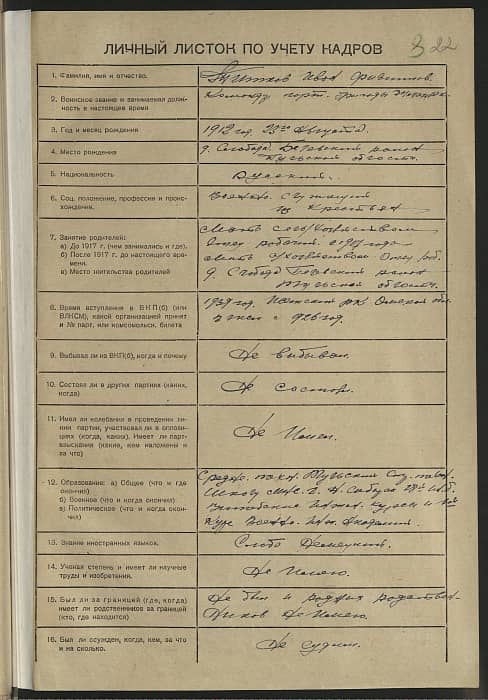 322
ЛИЧНЫЙ ЛИСТОК ПО УЧЕТУ КАДРОВ
1. Фамилия, имя и отчество.
Иван
2. Воинское звание и занимаемая долж-
ность в настоящее время
3. Год и месяц рождения
1912 год 23го Августа.
4. Место рождения
д. Слобода район
Тульской области.
5. Национальность
Русский.
6. Соц. положение, профессия и проис-
хождение.
Военно. служащий
из крестьян
7. Занятие родителей:
а) До 1917 г. (чем занимались и где).
б) После 1917 г. до настоящего вре-
мени.
в) Место жительства родителей
Мать
Отец года
мать Отец раб.
д. Слобода район
Тульской области.
8. Время вступления в ВКП(б) (или
ВЛКСМ), какой организацией принят
и № парт. или комсомольск. билета
1939 год. РК Омской обл.
в 1926 год.
9. Выбывал ли из ВКП(б), когда и почему
Не выбывал.
10. Состоял ли в других партиях (каких,
когда)
Не состоял.
11. Имел ли колебания в проведении ли-
нии партии, участвовал ли в оппози-
циях (когда, каких). Имеет ли парт-
взыскания (какие, кем наложены и
за что)
Не имел.
12. Образование: а) Общее (что и где
окончил)
б) Военное (что и когда окончил)
в) Политическое (что и когда окон-
чил)
Средн. Тульская
Школу
курсы и
Военно. Инж. Академии.
13. Знание иностранных языков.
Слабо Немецкий.
14. Ученая степень и имеет ли научные
труды и изобретения.
Не имею.
15. Был ли за границей (где, когда)
имеет ли родственников за границей
(кто, где находится)
Не был и родствен-
ников Не имею.
16. Был ли осужден, когда, кем, за что
и на сколько.
Не судим.